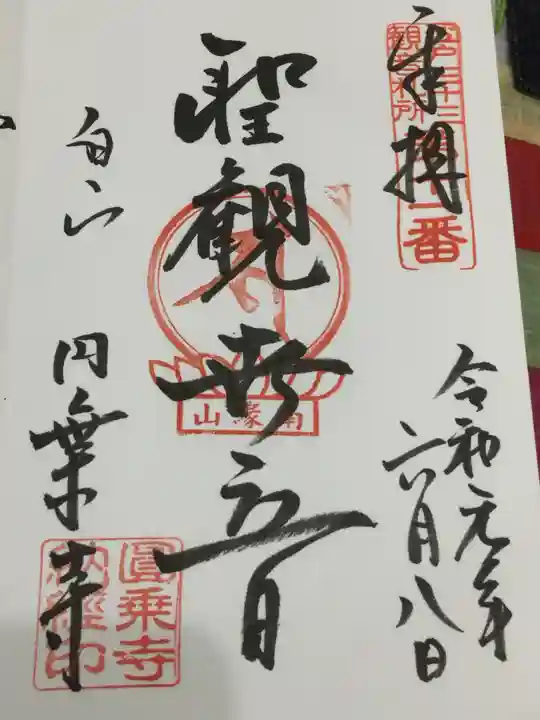 奉拝
江戸三十三
観音札所
十一番
令和元年
六月八日
聖観世音
南縁山
白山
円乗寺
圓乗寺
納経印